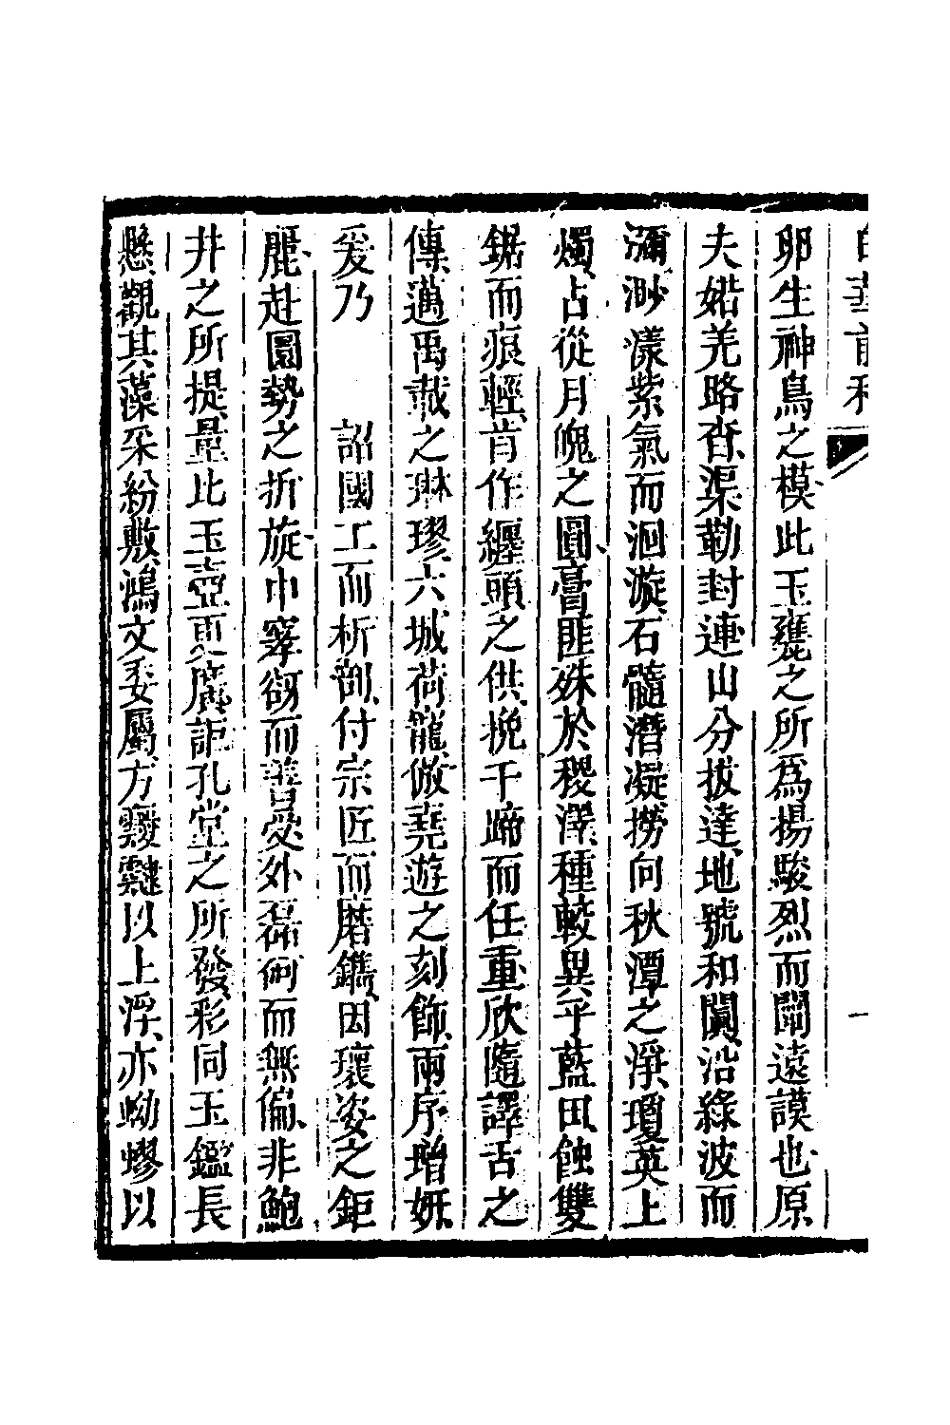 卵生神鳥之模此玉甕之所爲揚駿烈而闡遠謨也原
夫婼羌路杳渠勒封連山分拔達地號和闐沿綠波而
瀰渺漾紫氣而洄漩石髓潛凝撈向秋潭之淨瓊英上
燭占從月魄之圓膏匪殊於稷澤種較異乎藍田蝕雙
鋸而痕輕肯作纏頭之供挽千蹄而任重欣隨譯舌之
傳邁禹載之琳璆六城荷寵倣堯遊之刻飾兩序增妍
爰乃　詔國工而析剖付宗匠而磨鐫因瓌姿之鉅
麗赴圜勢之折旋中窾郤而善受外磊砢而無偏非鮑
井之所提量比玉壺更廣詎孔堂之所發彩同玉鑑長
懸觀其藻采紛敷鴻文委屬方靉靆以上浮亦蚴蟉以